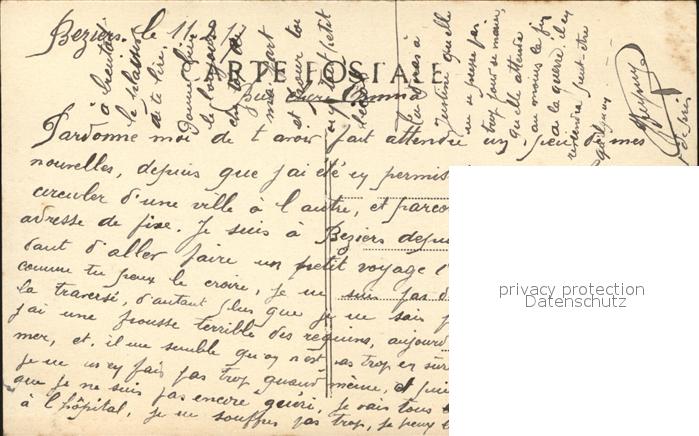 Beziers, le 11
CARTE POSTALE
Pardonne moi de t avoir fait attendre un peu mes
nouvelles, depuis que j'ai été en permis
circuler d'une ville à l'autre, et parco
adresse de fixe. Je suis à Beziers depu
dant d'aller faire un petit voyage l'
comme tu peux le croire, je ne suis pas d
la traversé, d'autant plus que je ne sais p
j'ai une frousse terrible des requins, aujourd
mer, et, il me semble qu'on n'est pas trop en sur
je ne m'en fais pas trop quand même, et puis
que je ne suis pas encore guéri, je vais tous
à l'hôpital, je ne souffre pas trop, je peux
à bientôt
le plaisir
de te lire.
Donne lui
le bonjour
ma part
et pour toi
petit
Tu diras à
Justine qu'elle
ne se presse pas
trop pour se marier,
qu'elle attende
au moins la fin
de la guerre. il en
reviendra peut-être
quelques
privacy protection
Datenschutz